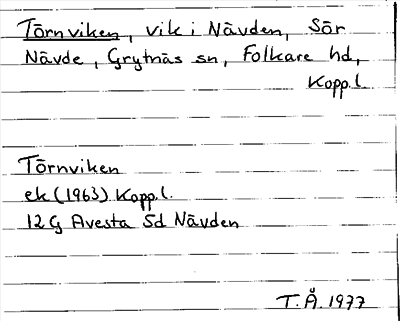 Törnviken, vik i Nävden, Sör
Nävde, Grytnäs sn, Folkare hd,
Kopp.l.
Törnviken
ek (1963) Kopp.l.
12 G Avesta 5d Nävden
T.Å. 1977